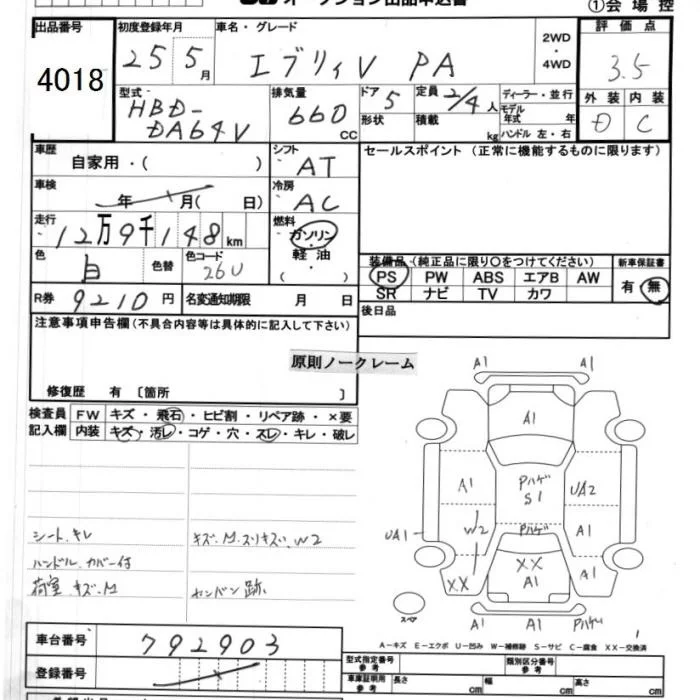 オークション出品申込書
①会場控
出品番号 4018
初度登録年月 25 5月
車名・グレード エブリィV PA
2WD・4WD
評価点 3.5
外装 D 内装 C
型式 HBD-DA64V
排気量 660 CC
ドア 5 形状
定員 2/4人 積載 kg
ディーラー・並行
モデル年式 年
ハンドル 左・右
車歴 自家用・( )
シフト AT
セールスポイント (正常に機能するものに限ります)
車検 年 月( 日)
冷房 AC
走行 12万9千148km
燃料 ガソリン・軽油・( )
色 白 色替 色コード 26U
装備品(純正品に限り○をつけてください)
PS PW ABS エアB AW
SR ナビ TV カワ
新車保証書 有 無
R券 9210円 名変通知期限 月 日
後日品
注意事項申告欄(不具合内容等は具体的に記入して下さい)
原則ノークレーム
修復歴 有〔箇所 〕
検査員記入欄
FW キズ・飛石・ヒビ割・リペア跡・×要
内装 キズ・汚レ・コゲ・穴・スレ・キレ・破レ
シート、キレ
ハンドル、カバー付
荷室、キズ、M
キズ、M、スリキズ、W2
カンバン跡、
A1 A1
A1
A1 Pハゲ S1 UA2
UA1 W2 Pハゲ A1
XX XX A1 A1
スペア
A1 A1 Pハゲ
A-キズ E-エクボ U-凹み W-補修跡 S-サビ C-腐食 XX-交換済
車台番号 792903
登録番号
型式指定番号 参考 類別区分番号 参考
車庫証明用 参考 長さ cm 幅 cm 高さ cm